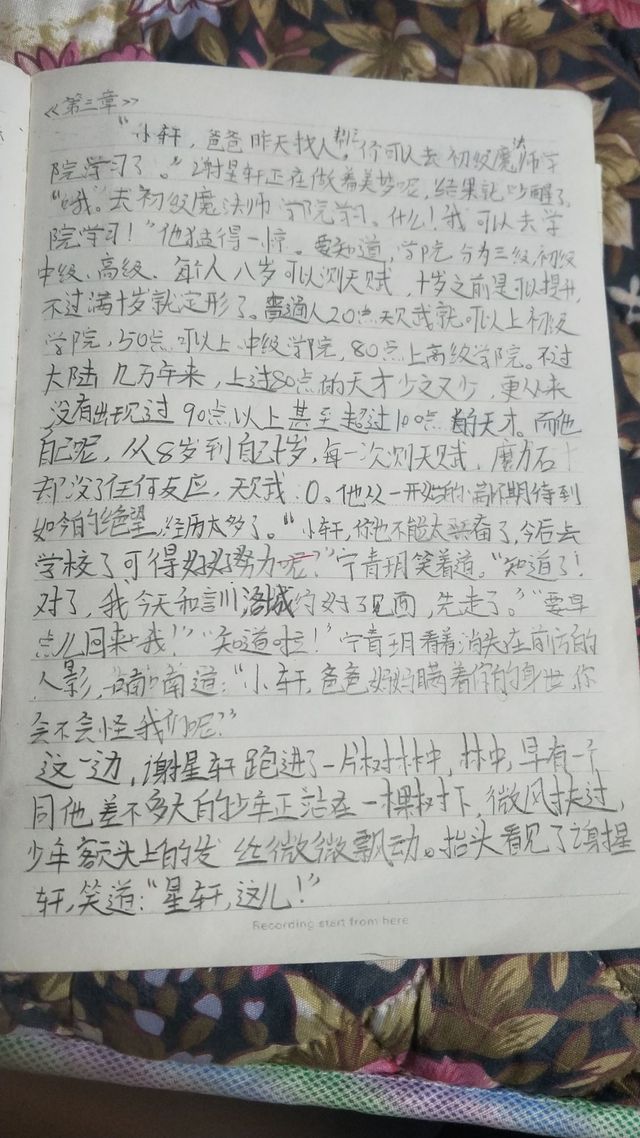 《第三章》
“小轩，爸爸昨天找人帮忙，你可以去初级魔法师学
院学习了。”谢星轩正在做着美梦呢，结果就吵醒了。
“哦。去初级魔法师学院学习。什么！我可以去学
院学习！”他猛得一惊。要知道，学院分为三级，初级
中级、高级、每个人八岁可以测天赋，十岁之前是可以提升，
不过满十岁就定形了。普通人20点天赋就可以上初级
学院，50点可以上中级学院，80点上高级学院。不过
大陆几万年来，上过80点的天才少之又少，更从来
没有出现过90点以上甚至超过100点的天才。而他
自己呢，从8岁到自己十岁，每一次测天赋，魔力石
却没了任何反应，天赋：0。他从一开始的满怀期待到
如今的绝望，经历太多了。“小轩，你也不能太兴奋了，今后去
学校了可得好好努力呢？”宁青玥笑着道。“知道了！
对了，我今天和訓洛城约好了见面，先走了。”“要早
点儿回来哦！”“知道啦！”宁青玥看着消失在前方的
人影，喃喃道：“小轩，爸爸妈妈瞒着你的身世，你
会不会怪我们呢？”
这一边，谢星轩跑进了一片树林中，林中，早有一个
同他差不多大的少年正站在一棵树下，微风拂过，
少年额头上的发丝微微飘动。抬头看见了谢星
轩，笑道：“星轩，这儿！”
Recording start from here